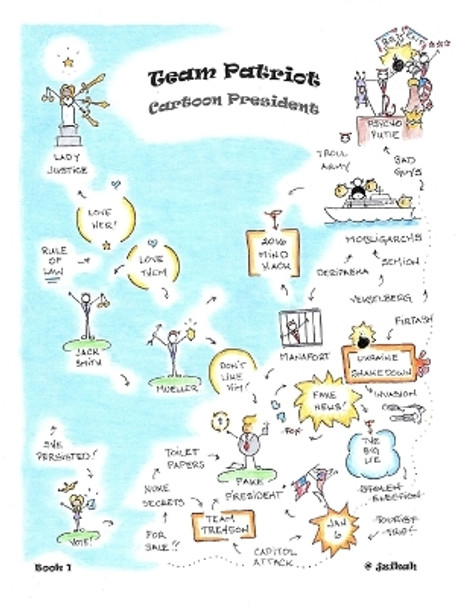 Team Patriot
Cartoon President
LADY
JUSTICE
LOVE
HER!
RULE
OF
LAW
LOVE
THEM
JACK
SMITH
MUELLER
2016
MIND
HACK
TROLL
ARMY
PSYCHO
PUTIE
BAD
GUYS
MOBLIGARCHS
DERIPASKA
SEMION
VEKSELBERG
FIRTASH
MANAFORT
UKRAINE
SHAKEDOWN
INVASION
DON'T
LIKE
HIM!
FAKE
NEWS!
FOX
THE
BIG
LIE
STOLEN
ELECTION
TOURIST
FAKE
PRESIDENT
TOILET
PAPERS
NUKE
SECRETS
FOR
SALE!!
TEAM
TREASON
JAN
6
CAPITOL
ATTACK
SHE
PERSISTED!
VOTE!
Book 1